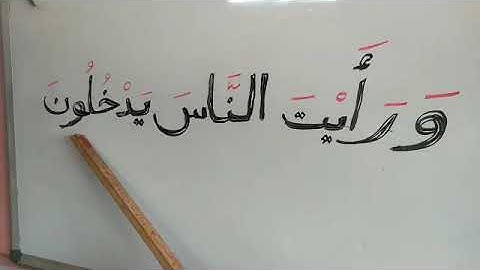 وَرَأَيْتَ النَّاسَ يَدْخُلُونَ